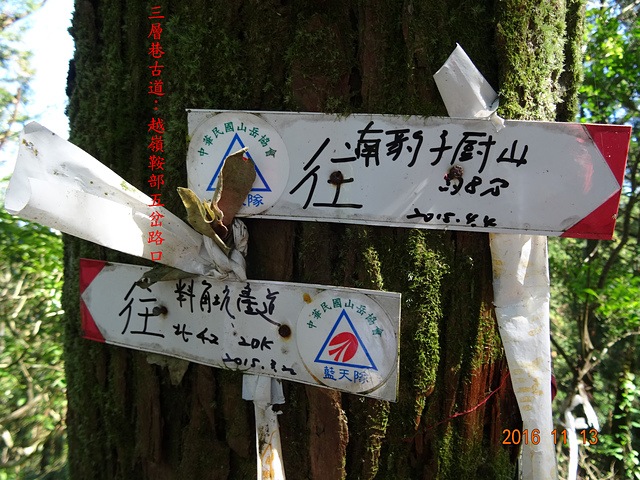 三層巷古道．越嶺鞍部五岔路口
中華民國山岳協會
天隊
往 南豹子厨山
約8分
2015.4.4
往 料角坑產道
北42 20K
2015.3.22
中華民國山岳協會
藍天隊
2016 11 13